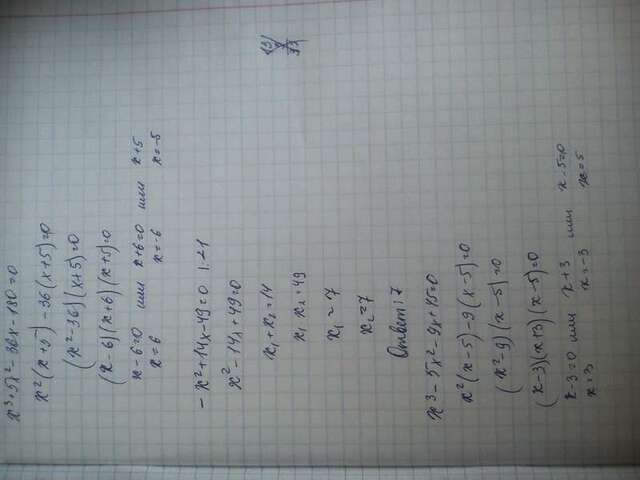 x³+5x²-36x-180=0
x²(x+5)-36(x+5)=0
(x²-36)(x+5)=0
(x-6)(x+6)(x+5)=0
x-6=0 или x+6=0 или x+5
x=6 x=-6 x=-5
-x²+14x-49=0 |·-1
x²-14x+49=0
x₁+x₂=14
x₁x₂=49
x₁=7
x₂=7
Ответ: 7
x³-5x²-9x+45=0
x²(x-5)-9(x-5)=0
(x²-9)(x-5)=0
(x-3)(x+3)(x-5)=0
x-3=0 или x+3 или x-5=0
x=3 x=-3 x=5